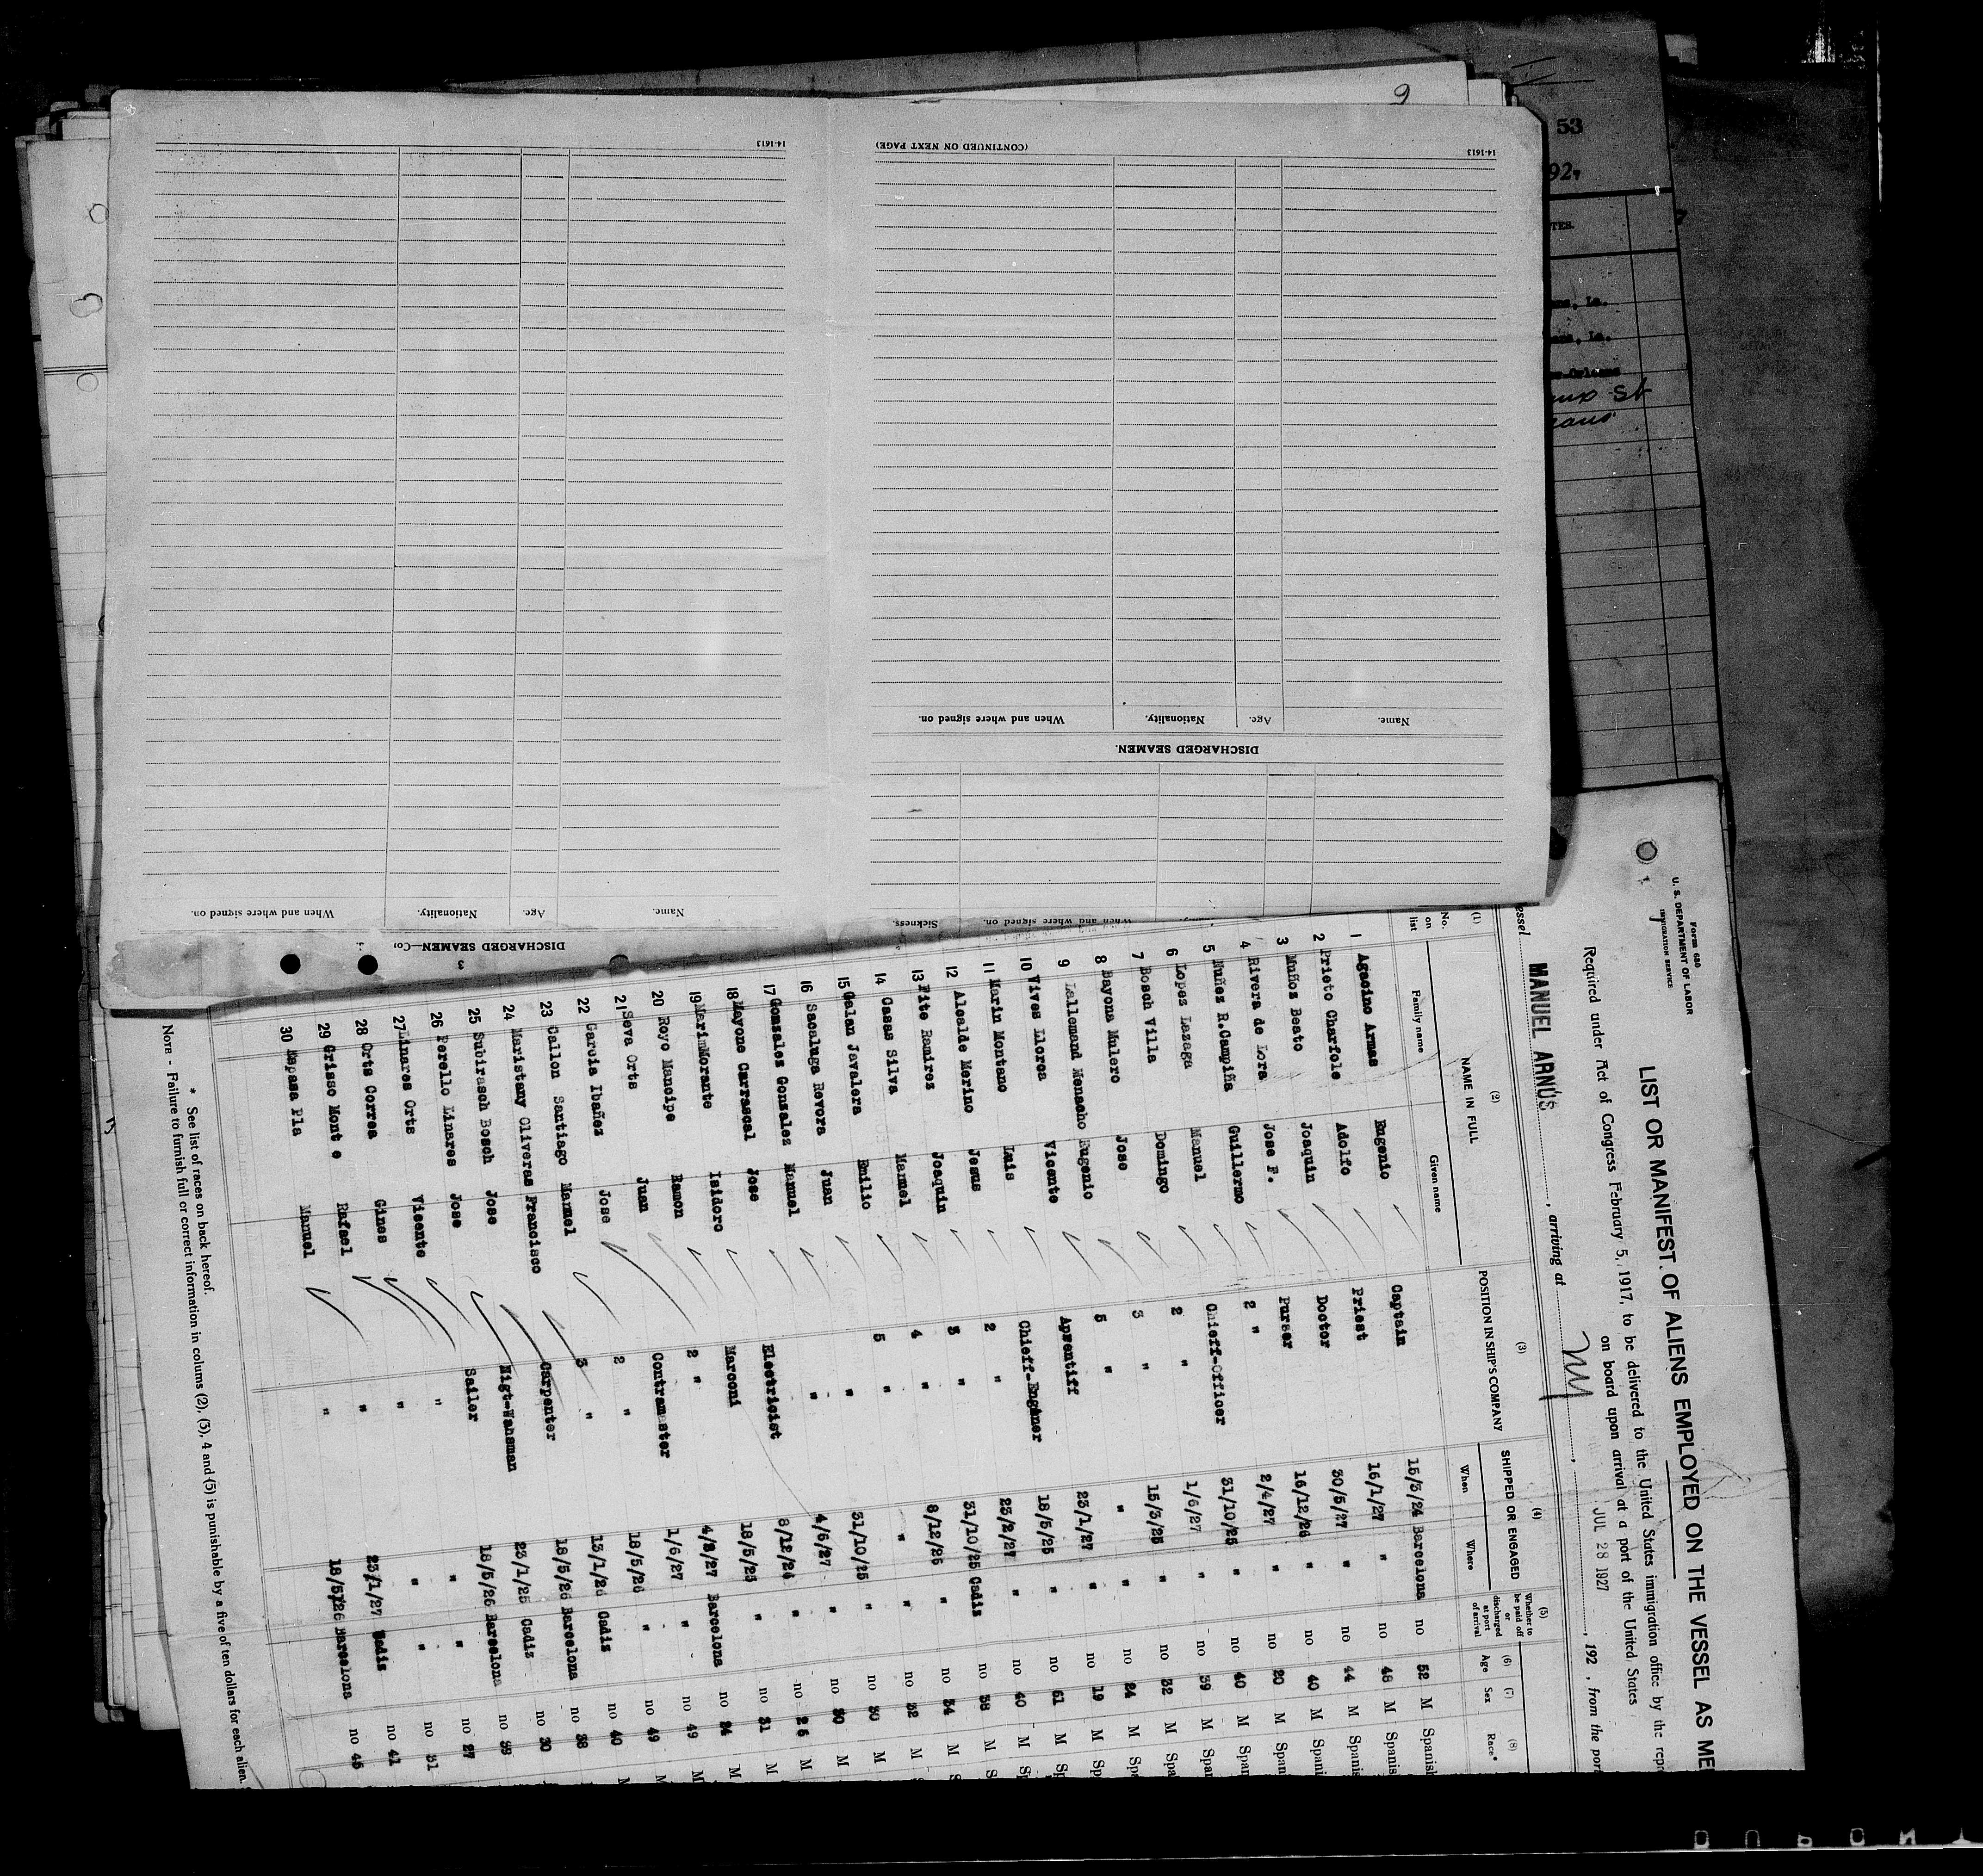 9
14-1613
(CONTINUED ON NEXT PAGE)
14-1613
When and where signed on.
Nationality.
Age.
Name.
DISCHARGED SEAMEN.
When and where signed on.
Nationality.
Age.
Name.
Sickness.
When and where signed on.
DISCHARGED SEAMEN—Con
3
53
Form 680
U. S. DEPARTMENT OF LABOR
IMMIGRATION SERVICE
LIST OR MANIFEST OF ALIENS EMPLOYED ON THE VESSEL AS ME
Required under Act of Congress February 5, 1917, to be delivered to the United States immigration office by the repr
on board upon arrival at a port of the United States
essel MANUEL ARNÚS, arriving at NY, JUL 28 1927, 192 , from the port
(1) (2) (3) (4) (5) (6) (7) (8)
No. on list NAME IN FULL POSITION IN SHIP'S COMPANY SHIPPED OR ENGAGED Whether to be paid off or discharged at port of arrival Age Sex Race*
Family name Given name When Where
1 Agacino Armas Eugenio Captain 15/3/24 Barcelona no 52 M Spanish
2 Prieto Charfole Adolfo Priest 16/1/27 " no 48 M Spanis
3 Muños Beato Joaquin Doctor 30/5/27 " no 44 M Spanis
4 Rivera de Lora Jose F. Purser 16/12/26 " no 40 M Spani
5 Nuñez R.Campiña Guillermo 2 " 2/4/27 " no 20 M Span
6 Lopez Lazaga Manuel Chieff-Officer 31/10/25 " no 40 M Span
7 Bosch Villa Domingo 2 " 1/6/27 " no 39 M Span
8 Bayona Mulero Jose 3 " 15/3/25 " no 32 M Spa
9 Lallemand Menacho Eugenio 5 " " " no 24 M Spa
10 Vives Llorca Vicente Aprentiff 23/1/27 " no 19 M Sp
11 Marin Montano Luis Chieff-Enginer 18/5/25 " no 51 M Sp
12 Alcalde Merino Jesus 2 " 23/2/27 " no 40 M Sp
13 Pite Ramirez Joaquin 3 " 31/10/25 Cadis no 38 M S
14 Casas Silva Manuel 4 " 8/12/25 " no 34 M S
15 Galan Javalera Emilio 5 " " " no 32 M
16 Sacaluga Revora Juan " 31/10/25 " no 30 M
17 Gonzales Gonsalez Manuel " 4/6/27 " no 30 M
18 Mayone Carrascal Jose Electricist 8/12/24 " no 25 M
19 MarinMorante Isidoro Marconi 18/5/25 " no 31 M
20 Royo Mancipe Ramon 2 " 4/2/27 Barcelona no 24 M
21 Seva Orts Juan Contramaster 1/6/27 " no 49 M
22 Garcia Ibañez Jose 2 " 18/5/26 " no 49 M
23 Gallon Santiago Manuel 3 " 13/1/26 Cadis no 40 M
24 Maristany Oliveras Francisco Carpenter 18/5/26 Barcelona no 38
25 Subirasch Bosch Jose Nigt-Wahsman 23/1/25 Cadiz no 30
26 Perello Linares Jose Sailer 18/5/26 Barcelona no 39
27 Linares Orts Vicente " " " no 27
28 Orts Correa Gines " " " no 31
29 Grisso Mont e Rafael " 23/1/27 Cadis no 41
30 Depasa Pla Manuel " 18/5/26 Barcelona no 45
* See list of races on back hereof.
NOTE - Failure to furnish full or correct information in colums (2), (3), 4 and (5) is punishable by a five of ten dollars for each alien.